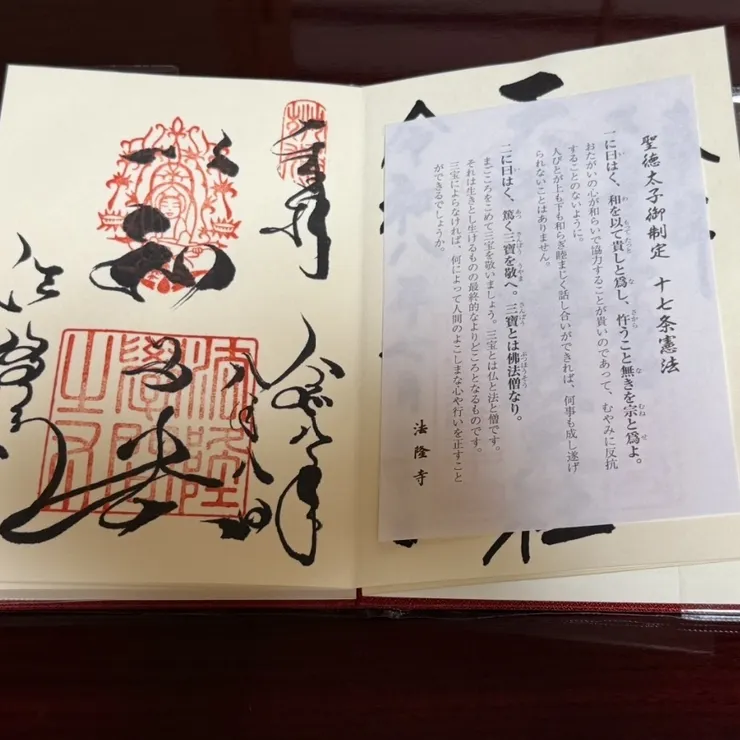 聖徳太子御制定 十七条憲法
一に曰はく、和を以て貴しと爲し、忤うこと無きを宗と爲よ。
おたがいの心が和らいで協力することが貴いのであって、むやみに反抗
することのないように。
人びとが上も下も和らぎ睦まじく話し合いができれば、何事も成し遂げ
られないことはありません。
二に曰はく、篤く三寶を敬へ。三寶とは佛法僧なり。
まごころをこめて三宝を敬いましょう。三宝とは仏と法と僧です。
それは生きとし生けるものの最終的なよりどころとなるものです。
三宝によらなければ、何によって人間のよこしまな心や行いを正すこと
ができるでしょうか。
法隆寺
奉拝
八月八日
以和為貴
法隆寺